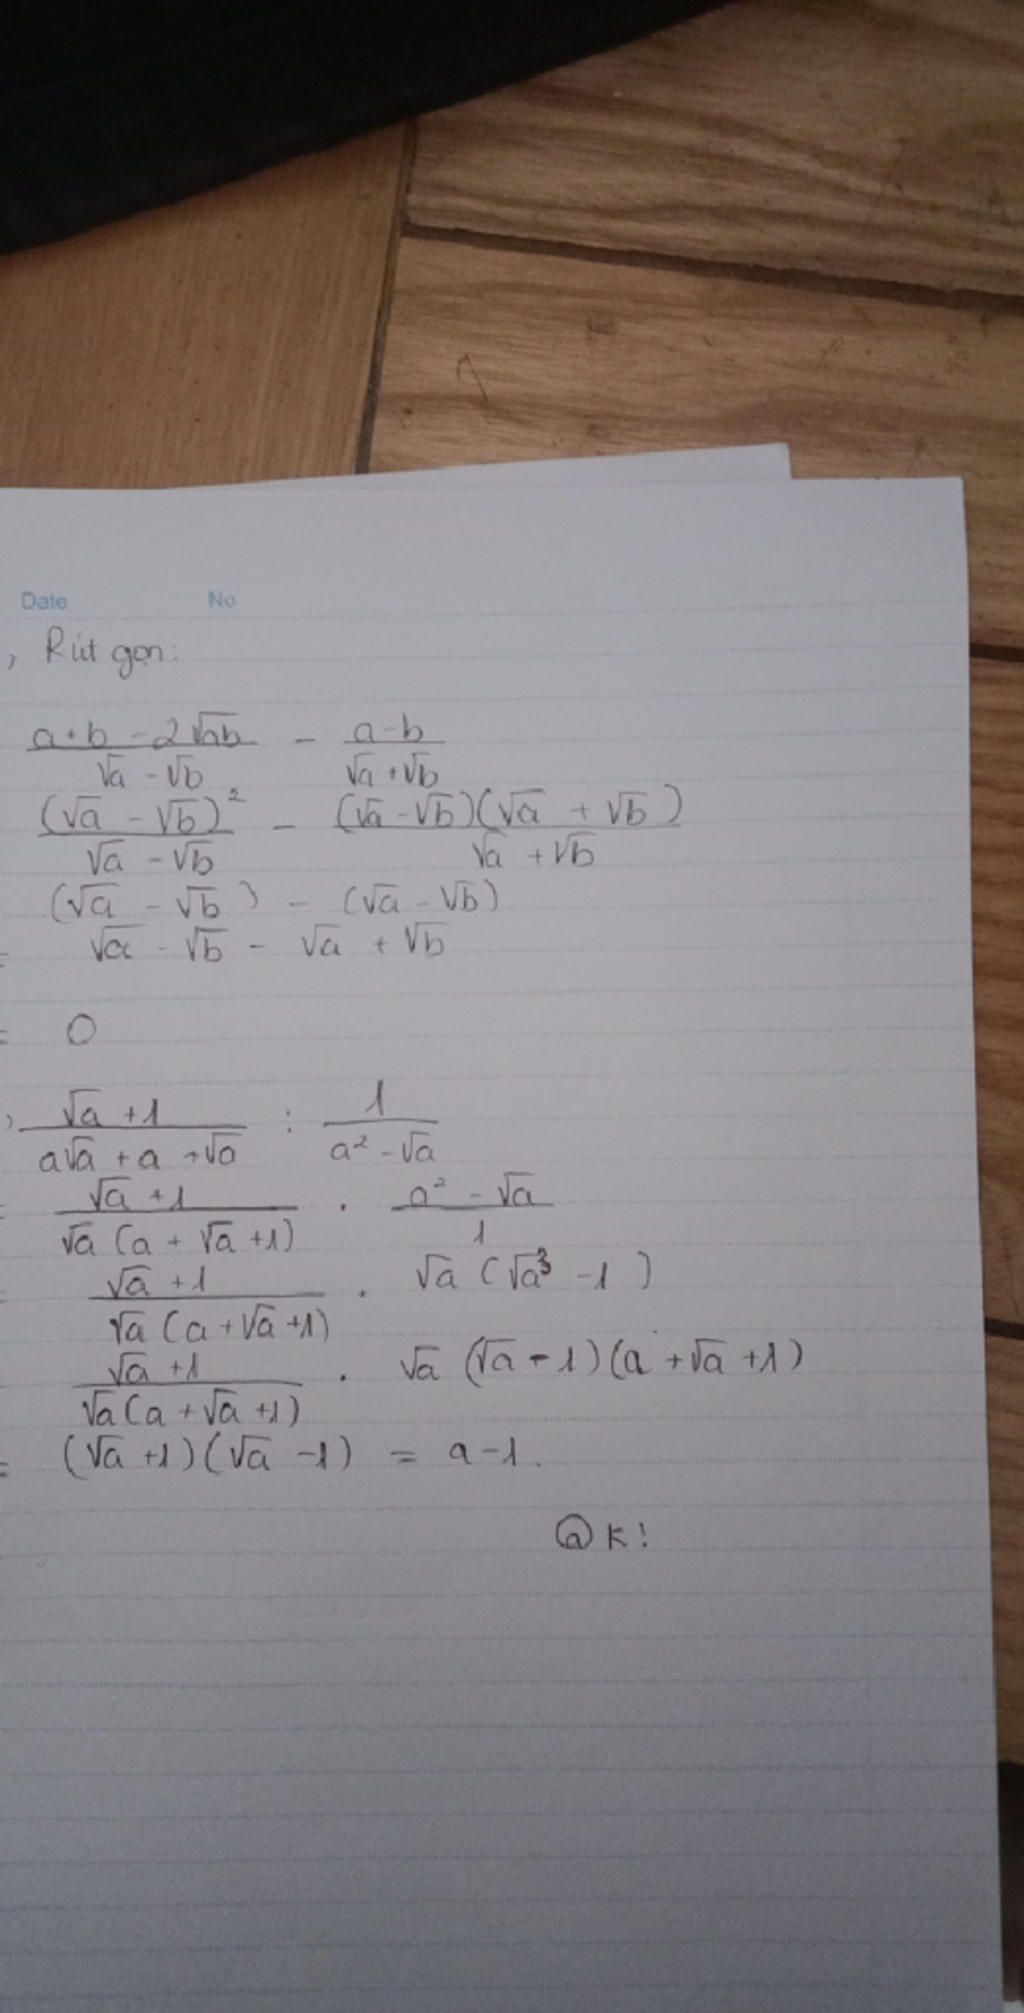 Date No
, Rút gọn:
(a+b-2√ab)/(√a-√b) - (a-b)/(√a+√b)
(√a-√b)²/(√a-√b) - (√a-√b)(√a+√b)/(√a+√b)
(√a-√b) - (√a-√b)
= √a-√b-√a+√b
= 0
, (√a+1)/(a√a+a+√a) : 1/(a²-√a)
= (√a+1)/(√a(a+√a+1)) . (a²-√a)/1
= (√a+1)/(√a(a+√a+1)) . √a(√a³-1)
(√a+1)/(√a(a+√a+1)) . √a(√a-1)(a+√a+1)
= (√a+1)(√a-1) = a-1.
@K!